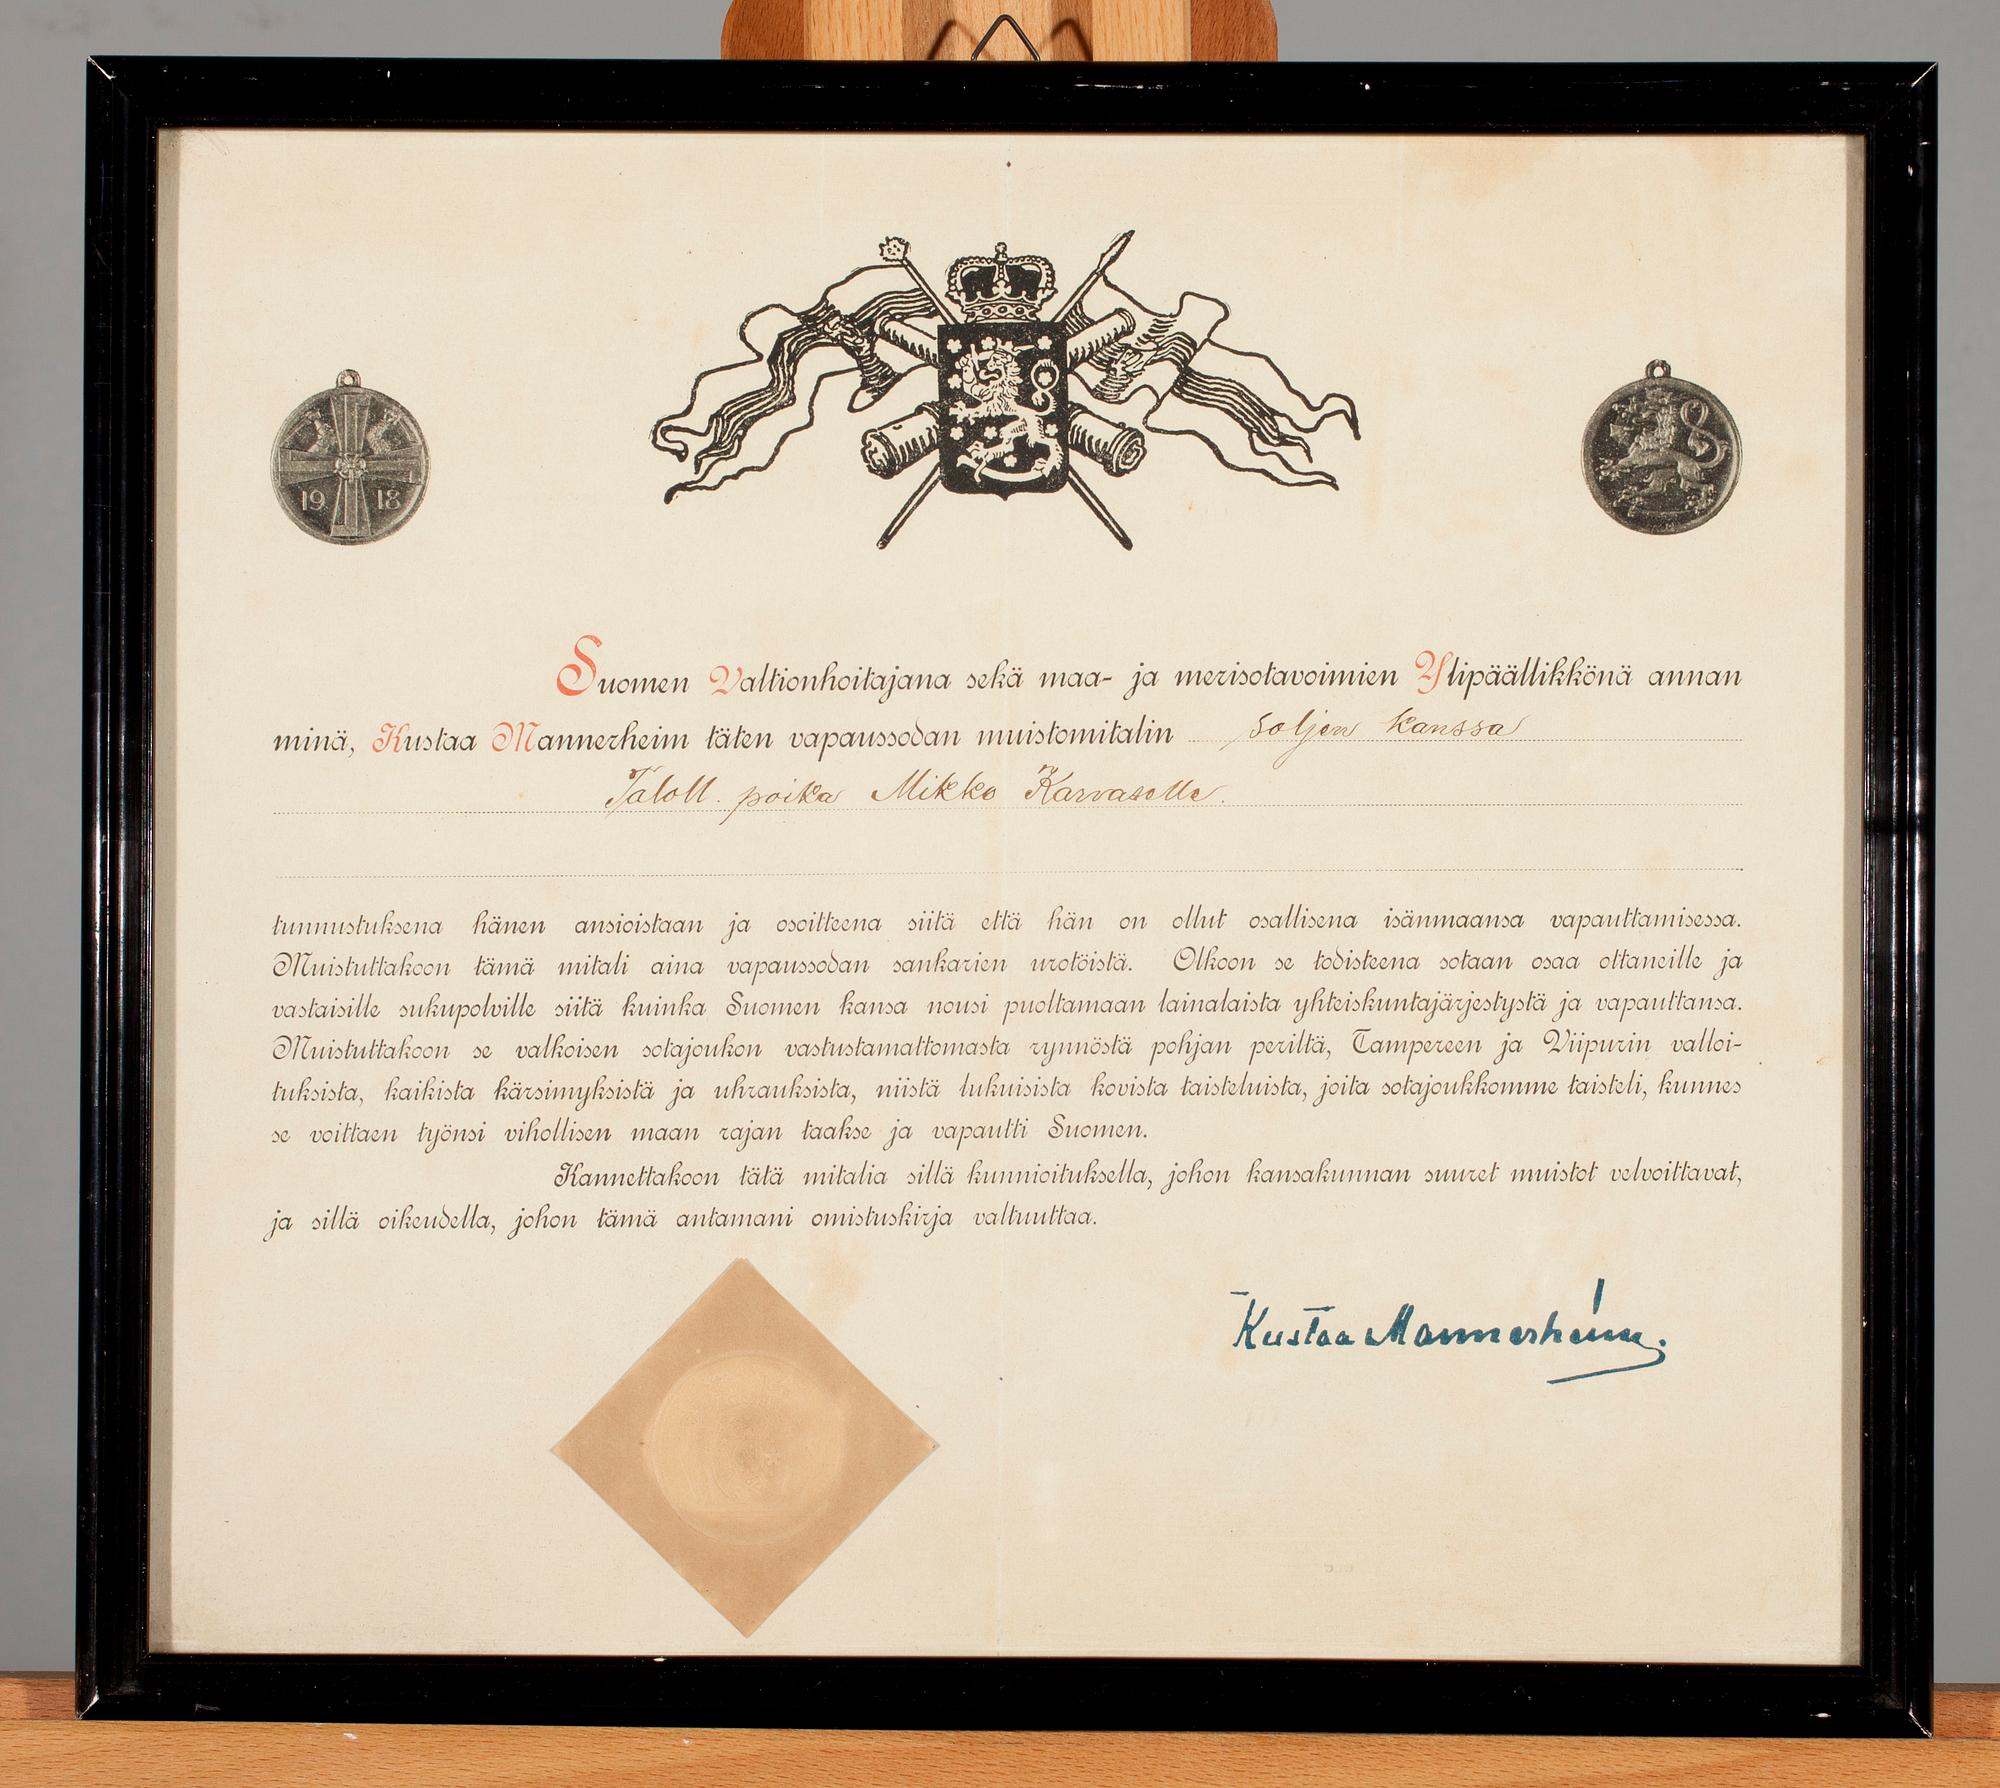 19 18
Suomen Valtionhoitajana sekä maa- ja merisotavoimien Ylipäällikkönä annan
minä, Kustaa Mannerheim täten vapaussodan muistomitalin soljen kanssa
Taloll. poika Mikko Karvaselle.
tunnustuksena hänen ansioistaan ja osoitteena siitä että hän on ollut osallisena isänmaansa vapauttamisessa.
Muistuttakoon tämä mitali aina vapaussodan sankarien urotöistä. Olkoon se todisteena sotaan osaa ottaneille ja
vastaisille sukupolville siitä kuinka Suomen kansa nousi puoltamaan lainalaista yhteiskuntajärjestystä ja vapauttansa.
Muistuttakoon se valkoisen sotajoukon vastustamattomasta rynnöstä pohjan periltä, Tampereen ja Viipurin valloi-
tuksista, kaikista kärsimyksistä ja uhrauksista, niistä lukuisista kovista taisteluista, joita sotajoukkomme taisteli, kunnes
se voittaen työnsi vihollisen maan rajan taakse ja vapautti Suomen.
Kannettakoon tätä mitalia sillä kunnioituksella, johon kansakunnan suuret muistot velvoittavat,
ja sillä oikeudella, johon tämä antamani omistuskirja valtuuttaa.
Kustaa Mannerheim.